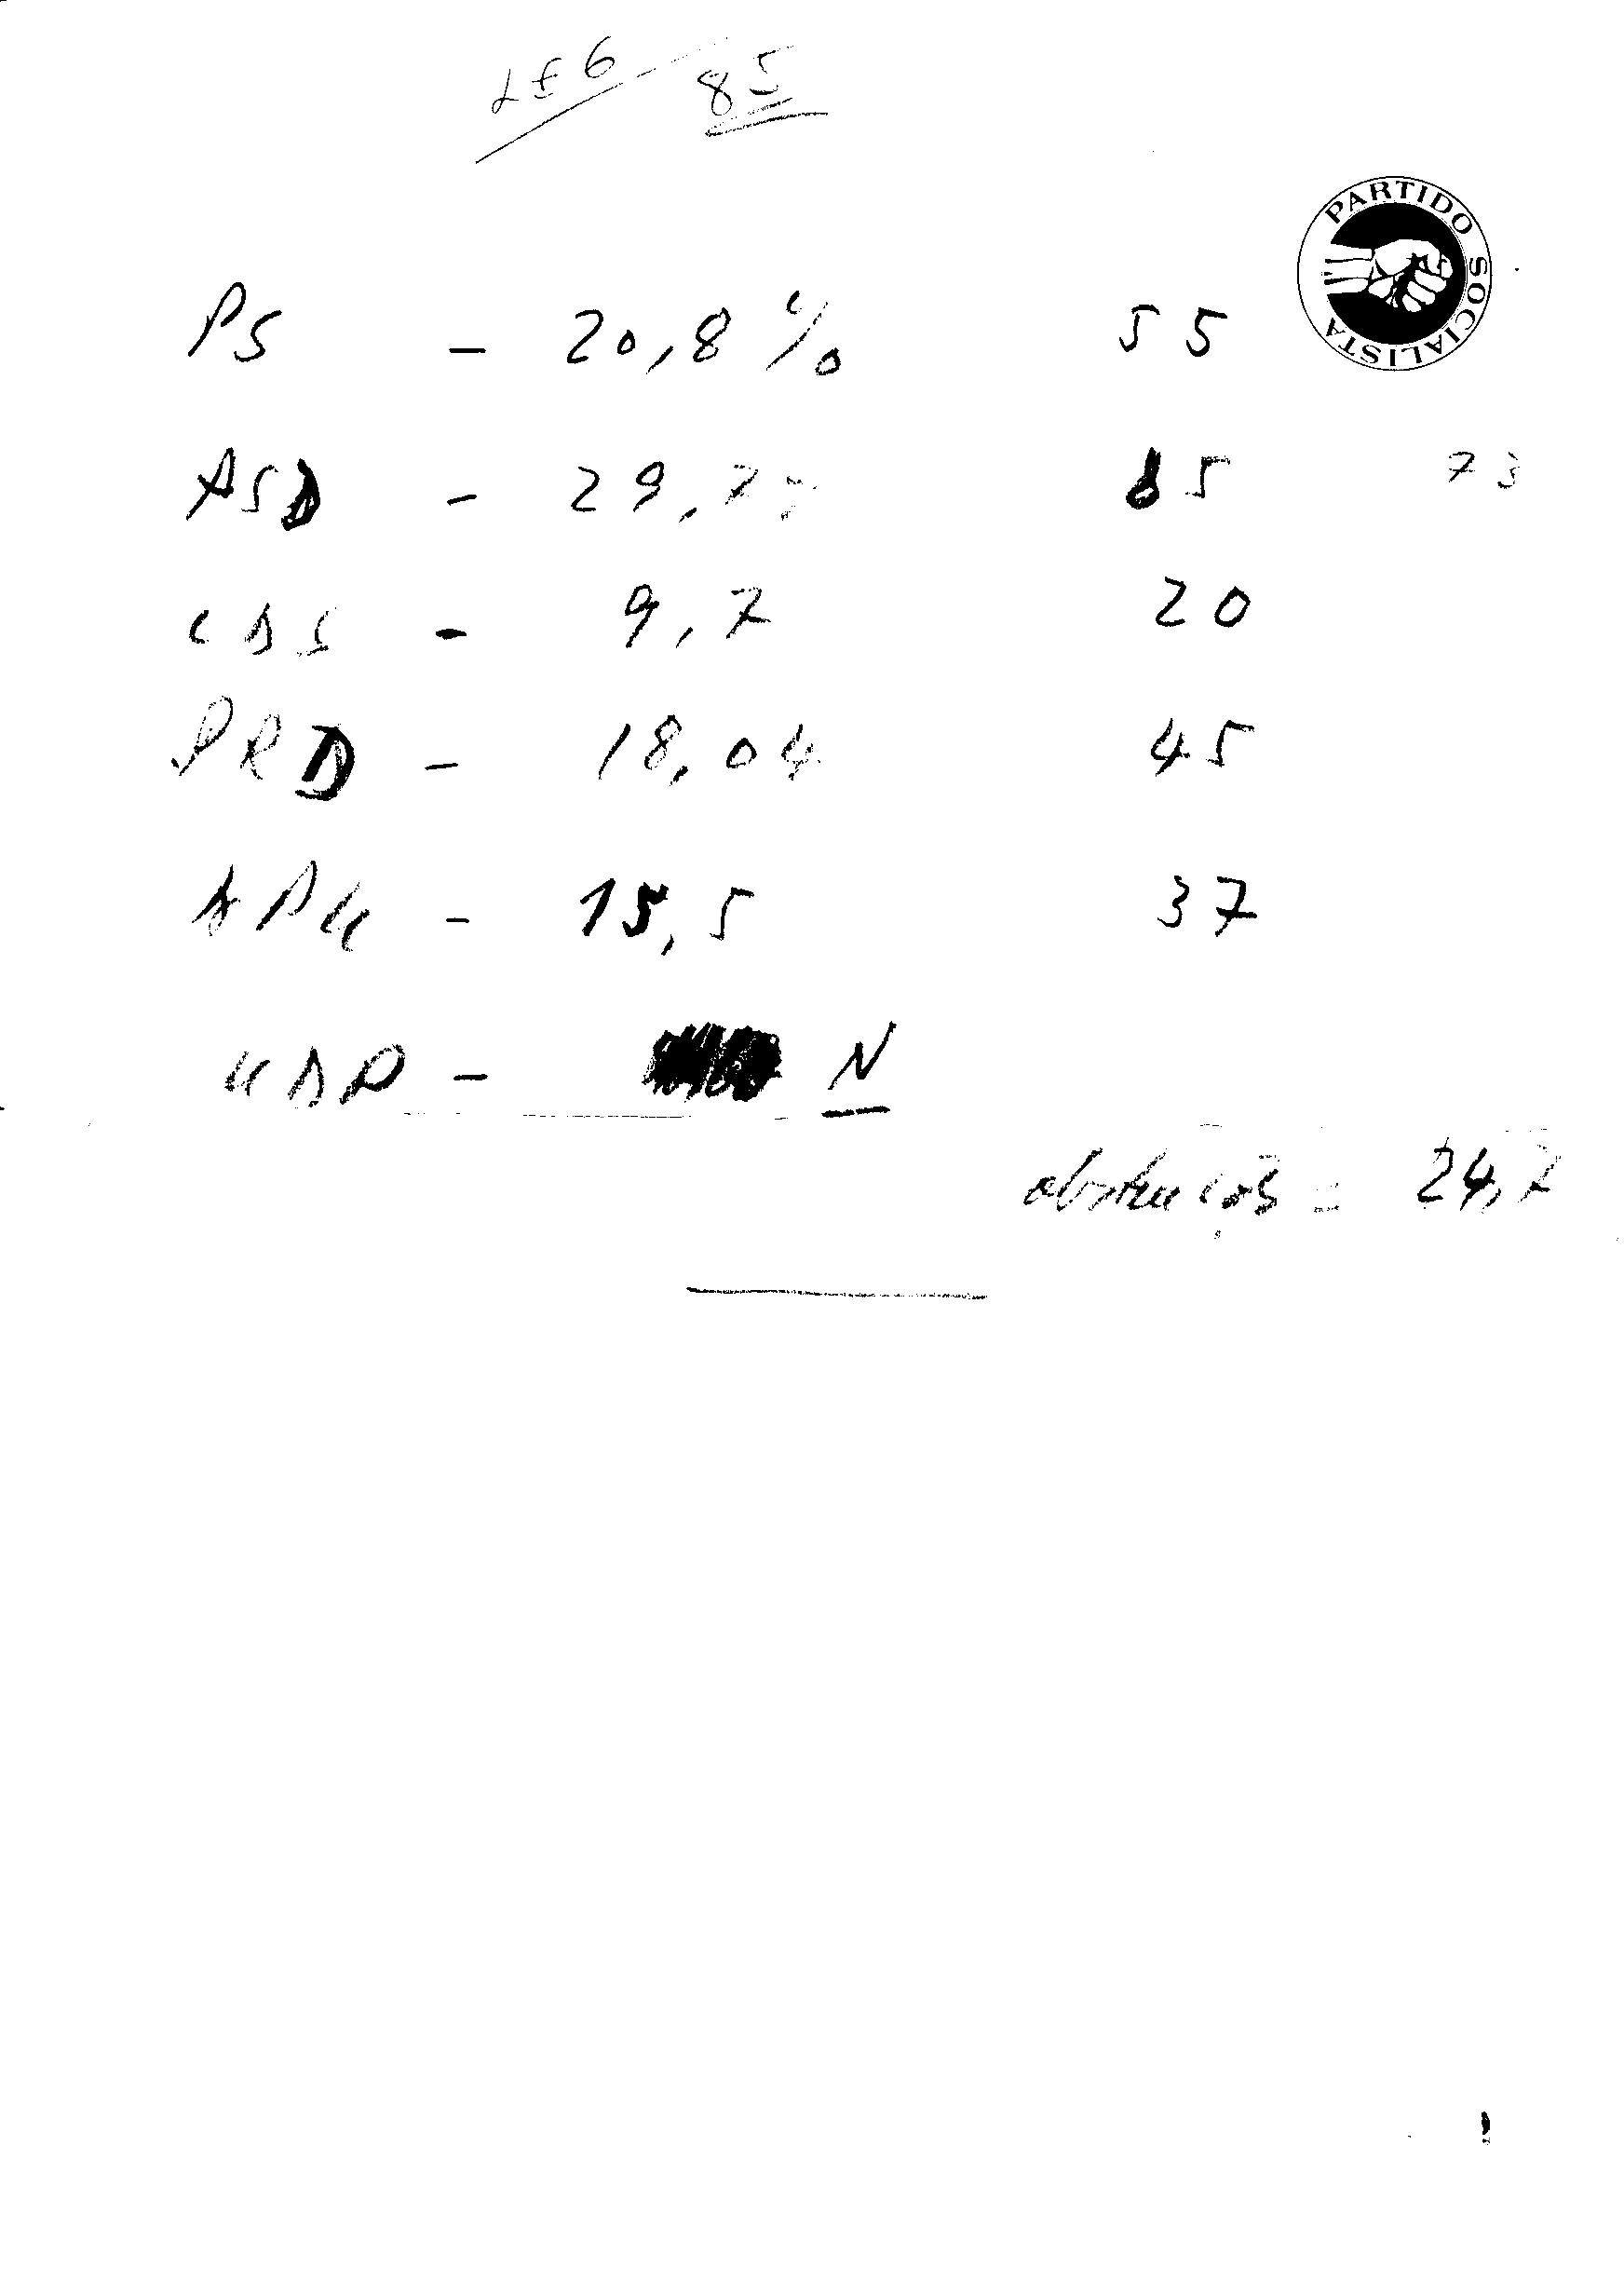 85
PARTIDO SOCIALISTA
PS - 20,8 % 55
PSD - 29,7 85 73
CDS - 9,7 20
PRD - 18,04 45
APU - 15,5 37
UDP - N
abstenção = 24,7